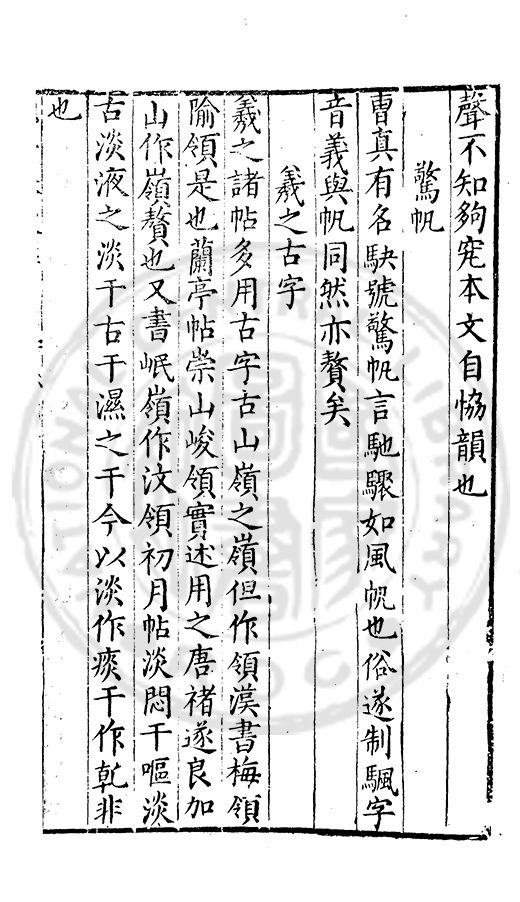 聲不知夠究本文自協韻也
驚帆
曹真有名駃號驚帆言馳驟如風帆也俗遂制颿字
音義與帆同然亦贅矣
羲之古字
羲之諸帖多用古字古山嶺之嶺但作領漢書梅領
隃領是也蘭亭帖崇山峻領實述用之唐褚遂良加
山作嶺贅也又書岷嶺作汶領初月帖淡悶干嘔淡
古淡液之淡干古干濕之干今以淡作痰干作乾非
也